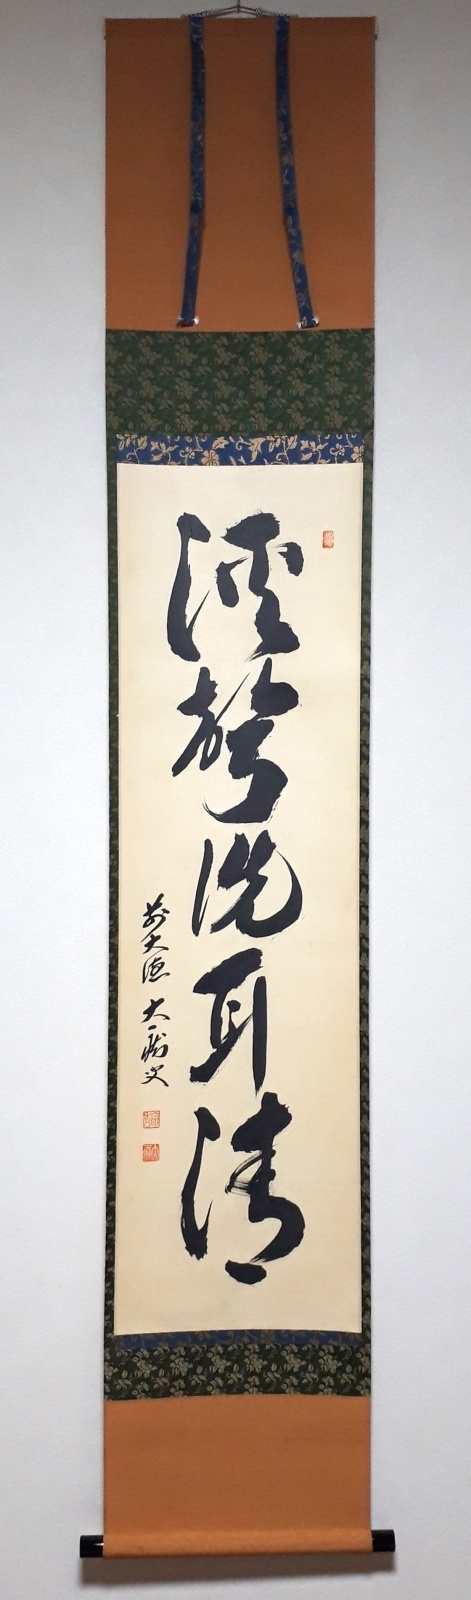 渓聲洗耳清
前大徳 大